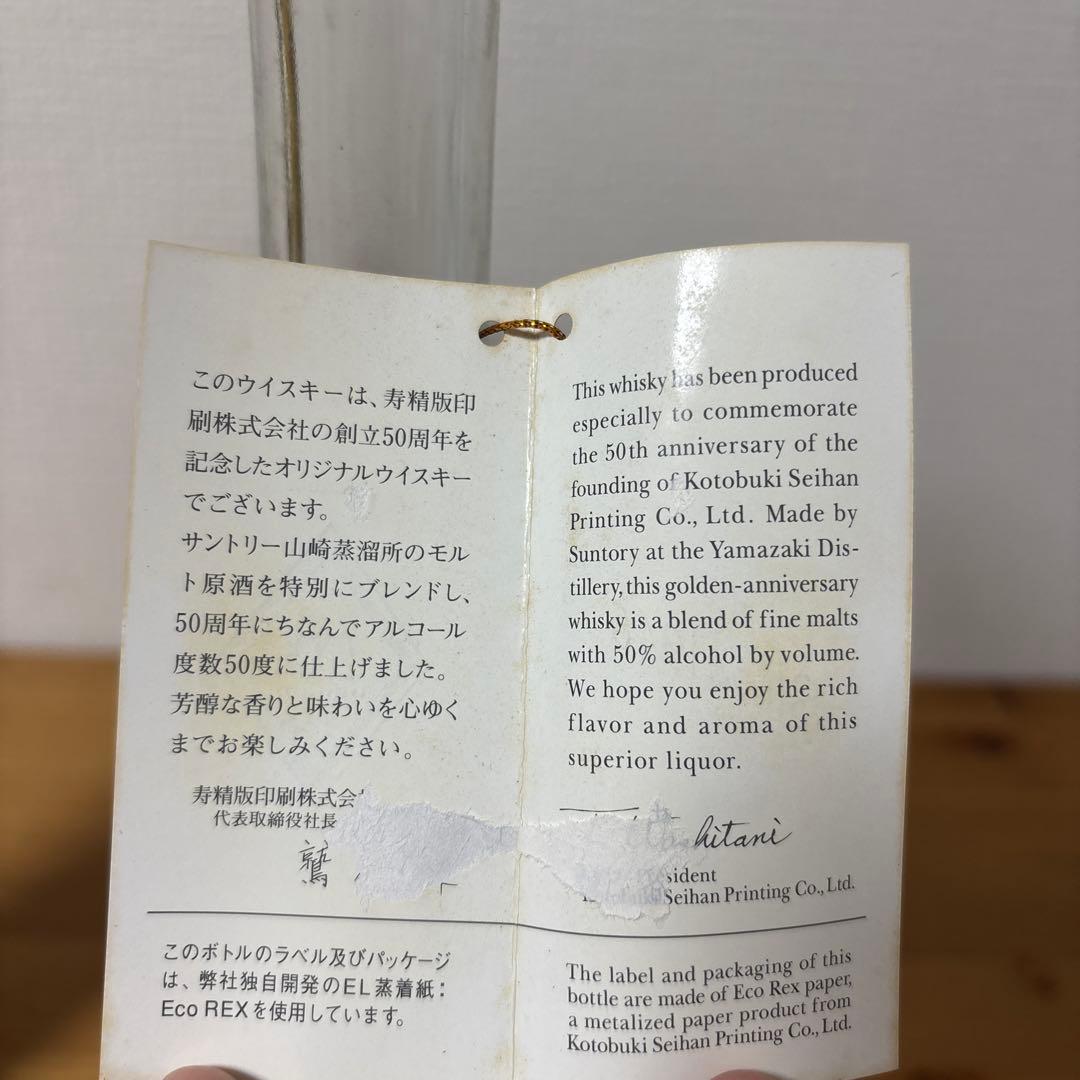 このウイスキーは、寿精版印
刷株式会社の創立50周年を
記念したオリジナルウイスキー
でございます。
サントリー山崎蒸溜所のモル
ト原酒を特別にブレンドし、
50周年にちなんでアルコール
度数50度に仕上げました。
芳醇な香りと味わいを心ゆく
までお楽しみください。
寿精版印刷株式会
代表取締役社長
鷲
このボトルのラベル及びパッケージ
は、弊社独自開発のEL蒸着紙：
Eco REXを使用しています。
This whisky has been produced
especially to commemorate
the 50th anniversary of the
founding of Kotobuki Seihan
Printing Co., Ltd. Made by
Suntory at the Yamazaki Dis-
tillery, this golden-anniversary
whisky is a blend of fine malts
with 50% alcohol by volume.
We hope you enjoy the rich
flavor and aroma of this
superior liquor.
hitani
sident
Seihan Printing Co., Ltd.
The label and packaging of this
bottle are made of Eco Rex paper,
a metalized paper product from
Kotobuki Seihan Printing Co., Ltd.